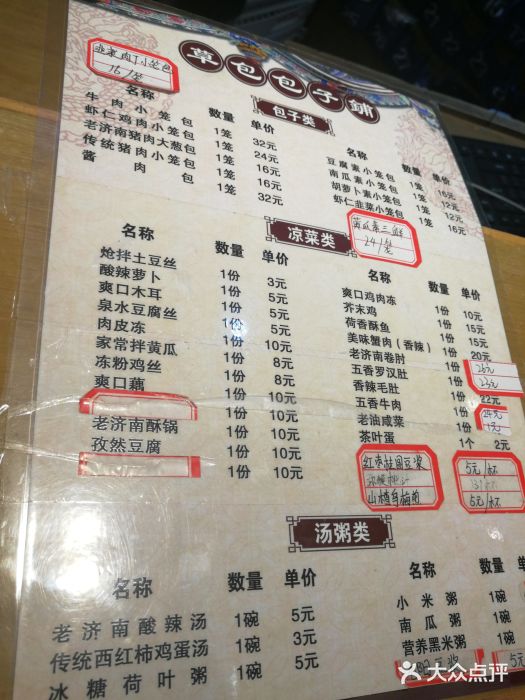 草包包子铺
韭黄肉丁小笼包
16/笼
包子类
名称 数量 单价
牛肉小笼包 1笼 32元
虾仁鸡肉小笼包 1笼 24元
老济南猪肉大葱包 1笼 16元
传统猪肉小笼包 1笼 16元
酱肉包 1笼 32元
名称 数量 单价
豆腐素小笼包 1笼 16元
南瓜素小笼包 1笼 12元
胡萝卜素小笼包 1笼 12元
虾仁韭菜小笼包 1笼 16元
黄瓜素三鲜
24/笼
凉菜类
名称 数量 单价
炝拌土豆丝 1份 3元
酸辣萝卜 1份 5元
爽口木耳 1份 5元
泉水豆腐丝 1份 5元
肉皮冻 1份 10元
家常拌黄瓜 1份 8元
冻粉鸡丝 1份 8元
爽口藕 1份 10元
1份 10元
老济南酥锅 1份 10元
孜然豆腐 1份 10元
1份 10元
名称 数量 单价
爽口鸡肉冻 1份 10元
芥末鸡 1份 15元
荷香酥鱼 1份 15元
美味蟹肉(香辣) 1份 20元
老济南卷肘 1份 23元
五香罗汉肚 1份 23元
香辣毛肚 1份 22元
五香牛肉 1份 24元
老油咸菜 1份 1元
茶叶蛋 1个 2元
红枣桂圆豆浆 5元/杯
山楂乌梅汤 5元/杯
汤粥类
名称 数量 单价
老济南酸辣汤 1碗 5元
传统西红柿鸡蛋汤 1碗 3元
冰糖荷叶粥 1碗 5元
名称 数量 单价
小米粥 1碗
南瓜粥 1碗
营养黑米粥 1碗
大众点评